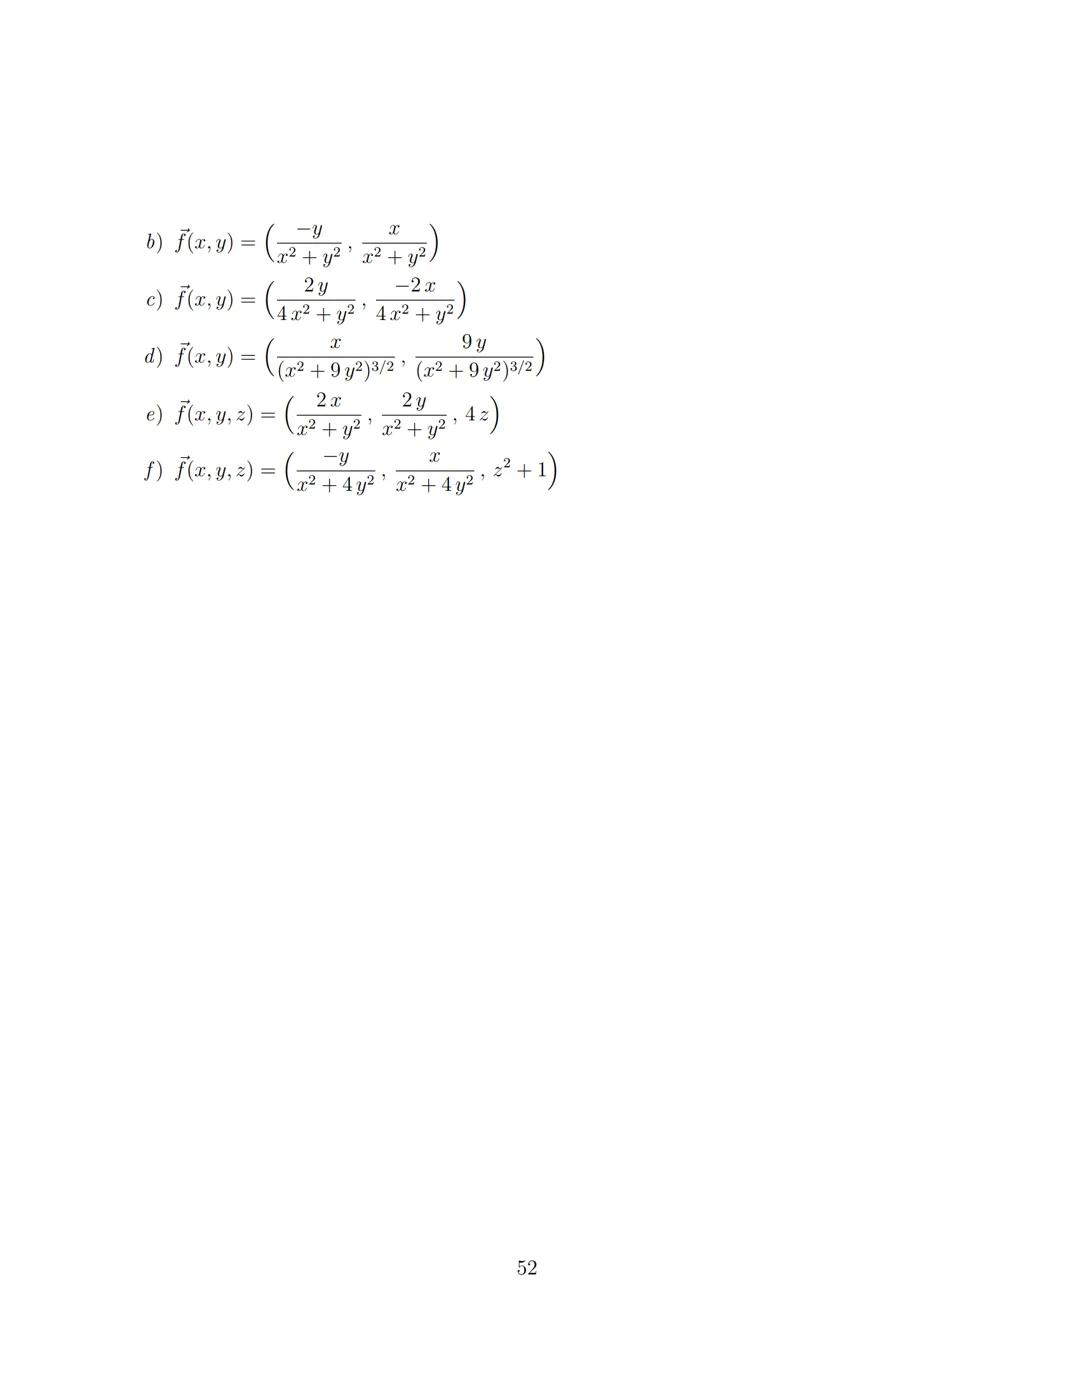 b) $\vec{f}(x, y) = \left(\dfrac{-y}{x^2 + y^2}, \dfrac{x}{x^2 + y^2}\right)$
c) $\vec{f}(x, y) = \left(\dfrac{2y}{4x^2 + y^2}, \dfrac{-2x}{4x^2 + y^2}\right)$
d) $\vec{f}(x, y) = \left(\dfrac{x}{(x^2 + 9y^2)^{3/2}}, \dfrac{9y}{(x^2 + 9y^2)^{3/2}}\right)$
e) $\vec{f}(x, y, z) = \left(\dfrac{2x}{x^2 + y^2}, \dfrac{2y}{x^2 + y^2}, 4z\right)$
f) $\vec{f}(x, y, z) = \left(\dfrac{-y}{x^2 + 4y^2}, \dfrac{x}{x^2 + 4y^2}, z^2 + 1\right)$
52